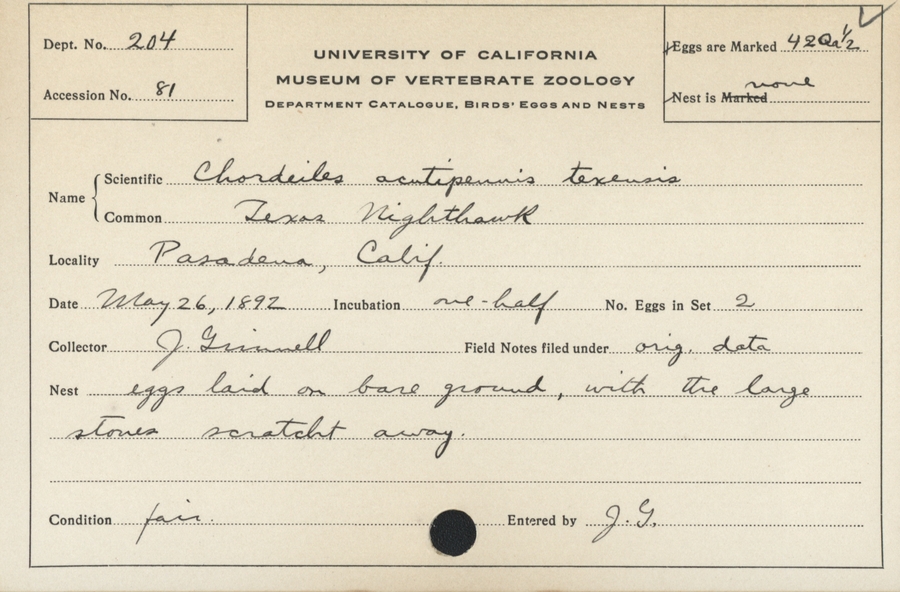 Dept. No. 204
Accession No. 81
UNIVERSITY OF CALIFORNIA
MUSEUM OF VERTEBRATE ZOOLOGY
DEPARTMENT CATALOGUE, BIRDS' EGGS AND NESTS
Eggs are Marked 420a½
none
Nest is Marked
Name
Scientific Chordeiles acutipennis texensis
Common Texas Nighthawk
Locality Pasadena, Calif.
Date May 26, 1892 Incubation one-half No. Eggs in Set 2
Collector J. Grinnell Field Notes filed under orig. data
Nest eggs laid on bare ground, with the large
stones scratcht away.
Condition fair. Entered by J. G.